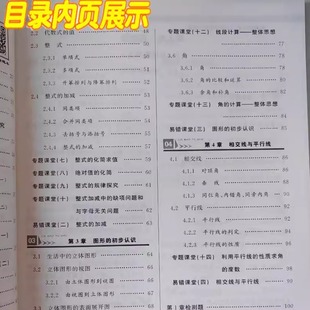 目录内页展示
2.2 代数式的值 48
2.3 整 式 50
2.3.1 单项式
2.3.2 多项式
3. 升幂排列与降幂排列
2.4 整式的加减
1. 同类项
2. 合并同类项
3. 去括号与添括号
4. 整式的加减
专题课堂(七) 整式的化简求值 59
专题课堂(八) 绝对值的化简
专题课堂(九) 整式的规律探究
专题课堂(十) 整式加减中的缺项问题和
与字母无关问题 62
易错课堂(二) 整式的加减
03 第3章 图形的初步认识
3.1 生活中的立体图形 64
3.2 立体图形的视图
1. 由立体图形到视图
2. 由视图到立体图形
3.3 立体图形的表面展开图
专题课堂(十二) 线段计算——整体思想
77
3.6 角
1. 角
2. 角的比较和运算
3. 余角和补角
专题课堂(十三) 角的计算——整体思想
易错课堂(三) 图形的初步认识
04 第4章 相交线与平行线
4.1 相交线
1. 对顶角
2. 垂 线
3. 同位角、内错角、同旁内角
4.2 平行线
1. 平行线
2. 平行线的判定
3. 平行线的性质
专题课堂(十四) 利用平行线的性质求角
的度数
易错课堂(四) 相交线与平行线
第1章检测题 100